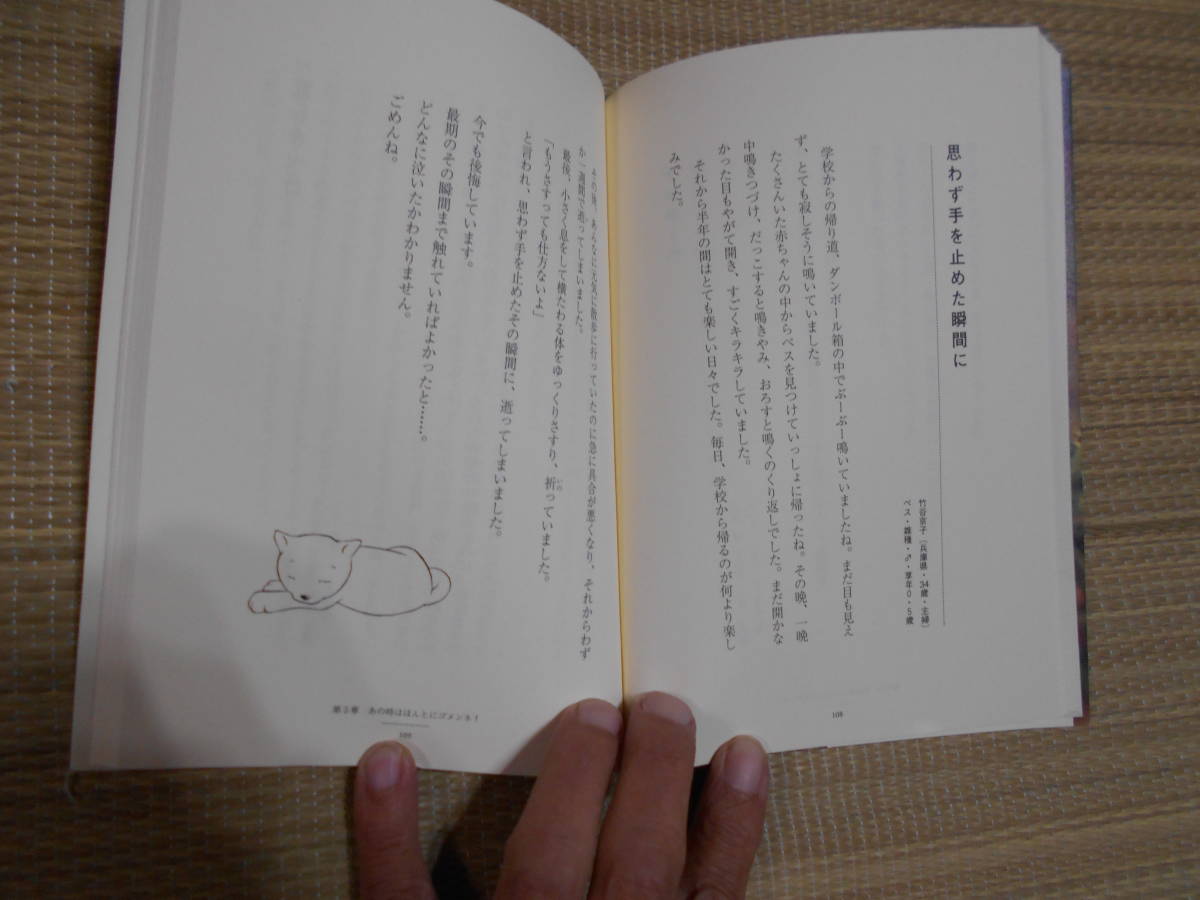 思わず手を止めた瞬間に
竹谷京子〔兵庫県・34歳・主婦〕
ベス・雑種・♂・享年0・5歳
学校からの帰り道、ダンボール箱の中でぶーぶー鳴いていましたね。まだ目も見え
ず、とても寂しそうに鳴いていました。
たくさんいた赤ちゃんの中からベスを見つけていっしょに帰ったね。その晩、一晩
中鳴きつづけ、だっこすると鳴きやみ、おろすと鳴くのくり返しでした。まだ開かな
かった目もやがて開き、すごくキラキラしていました。
それから半年の間はとても楽しい日々でした。毎日、学校から帰るのが何より楽し
みでした。
108
その後、あんなに元気に散歩に行っていたのに急に具合が悪くなり、それからわず
か一週間で逝ってしまいました。
最後、小さく息をして横たわる体をゆっくりさすり、祈っていました。
「もうさすっても仕方ないよ」
と言われ、思わず手を止めたその瞬間に、逝ってしまいました。
今でも後悔しています。
最期のその瞬間まで触れていればよかったと……。
どんなに泣いたかわかりません。
ごめんね。
第3章 あの時はほんとにゴメンネ!
109